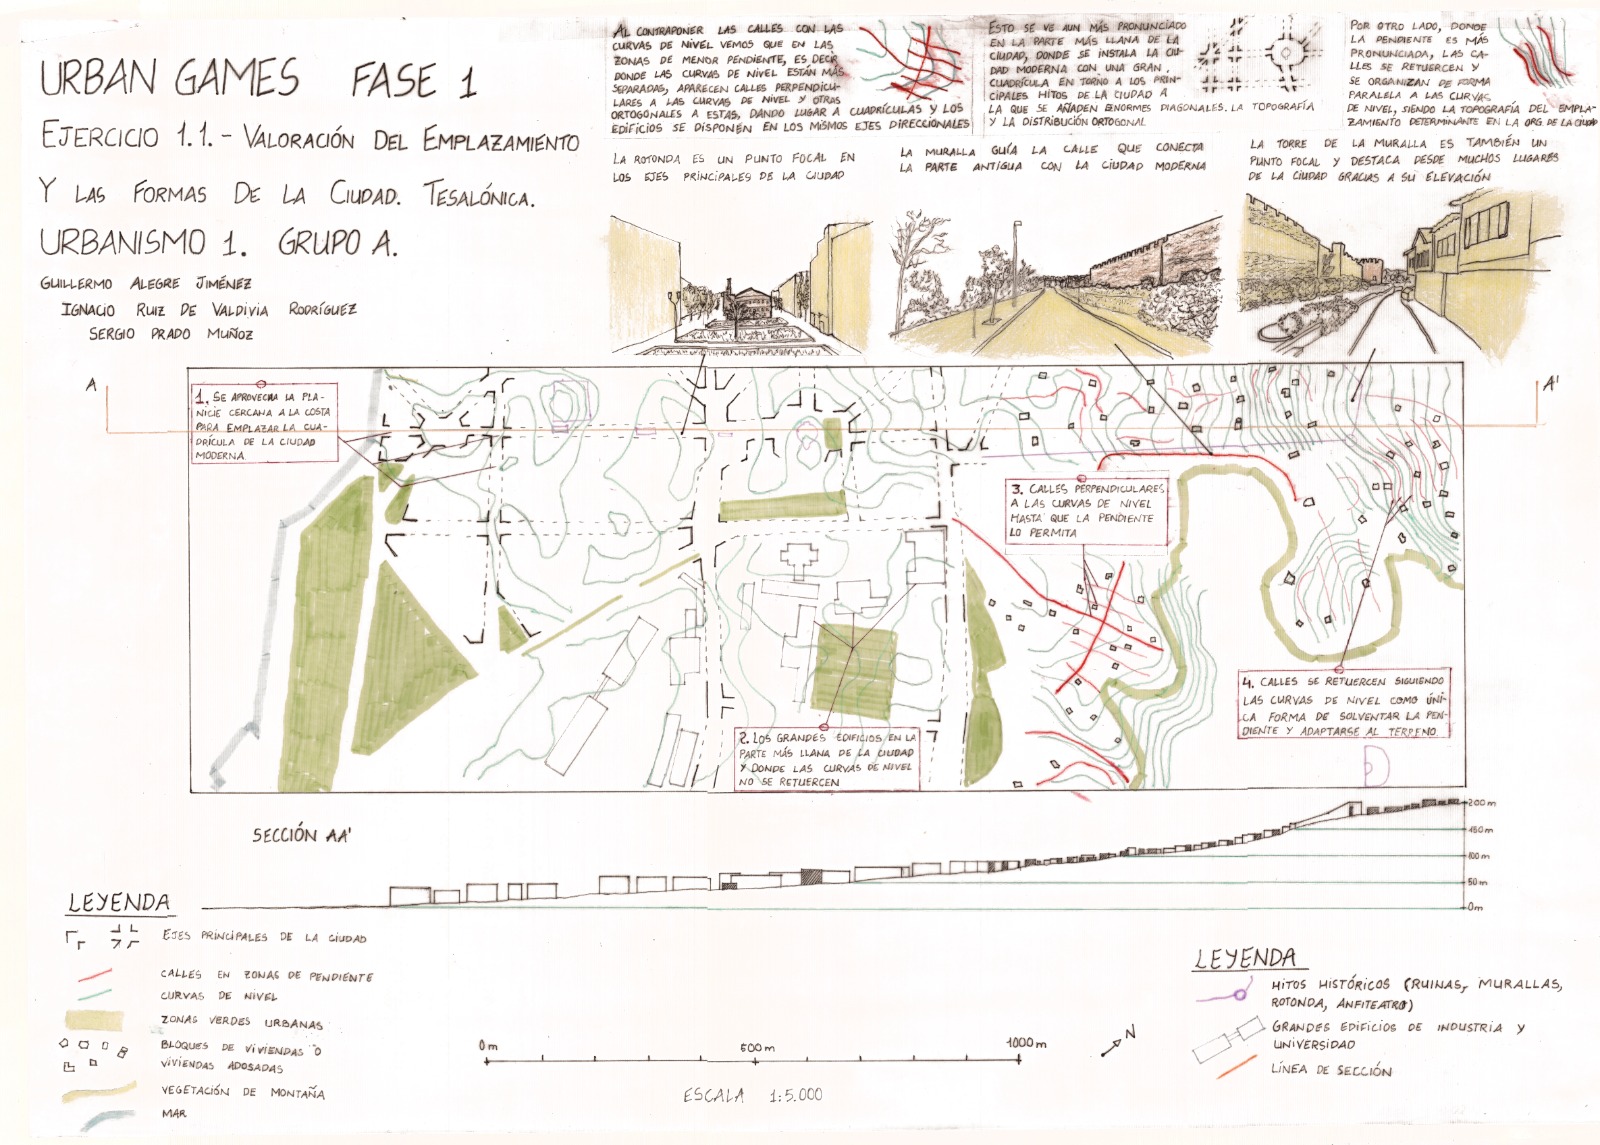 URBAN GAMES FASE 1
EJERCICIO 1.1.- VALORACIÓN DEL EMPLAZAMIENTO
Y LAS FORMAS DE LA CIUDAD. TESALÓNICA.
URBANISMO 1. GRUPO A.
GUILLERMO ALEGRE JIMÉNEZ
IGNACIO RUIZ DE VALDIVIA RODRÍGUEZ
SERGIO PRADO MUÑOZ
AL CONTRAPONER LAS CALLES CON LAS
CURVAS DE NIVEL VEMOS QUE EN LAS
ZONAS DE MENOR PENDIENTE, ES DECIR
DONDE LAS CURVAS DE NIVEL ESTÁN MÁS
SEPARADAS, APARECEN CALLES PERPENDICU-
LARES A LAS CURVAS DE NIVEL Y OTRAS
ORTOGONALES A ESTAS, DANDO LUGAR A CUADRÍCULAS Y LOS
EDIFICIOS SE DISPONEN EN LOS MISMOS EJES DIRECCIONALES
ESTO SE VE AUN MÁS PRONUNCIADO
EN LA PARTE MÁS LLANA DE LA
CIUDAD, DONDE SE INSTALA LA CIU-
DAD MODERNA CON UNA GRAN
CUADRÍCULA EN TORNO A LOS PRIN-
CIPALES HITOS DE LA CIUDAD A
LA QUE SE AÑADEN ENORMES DIAGONALES. LA TOPOGRAFÍA
Y LA DISTRIBUCIÓN ORTOGONAL
POR OTRO LADO, DONDE
LA PENDIENTE ES MÁS
PRONUNCIADA, LAS CA-
LLES SE RETUERCEN Y
SE ORGANIZAN DE FORMA
PARALELA A LAS CURVAS
DE NIVEL, SIENDO LA TOPOGRAFÍA DEL EMPLA-
ZAMIENTO DETERMINANTE EN LA ORG. DE LA CIUDAD
LA ROTONDA ES UN PUNTO FOCAL EN
LOS EJES PRINCIPALES DE LA CIUDAD
LA MURALLA GUÍA LA CALLE QUE CONECTA
LA PARTE ANTIGUA CON LA CIUDAD MODERNA
LA TORRE DE LA MURALLA ES TAMBIÉN UN
PUNTO FOCAL Y DESTACA DESDE MUCHOS LUGARES
DE LA CIUDAD GRACIAS A SU ELEVACIÓN
A
A'
1. SE APROVECHA LA PLA-
NICIE CERCANA A LA COSTA
PARA EMPLAZAR LA CUA-
DRÍCULA DE LA CIUDAD
MODERNA
3. CALLES PERPENDICULARES
A LAS CURVAS DE NIVEL
HASTA QUE LA PENDIENTE
LO PERMITA
4. CALLES SE RETUERCEN SIGUIENDO
LAS CURVAS DE NIVEL COMO ÚNI-
CA FORMA DE SOLVENTAR LA PEN-
DIENTE Y ADAPTARSE AL TERRENO
2. LOS GRANDES EDIFICIOS EN LA
PARTE MÁS LLANA DE LA CIUDAD
Y DONDE LAS CURVAS DE NIVEL
NO SE RETUERCEN
SECCIÓN AA'
200 m
150 m
100 m
50 m
0m
LEYENDA
EJES PRINCIPALES DE LA CIUDAD
CALLES EN ZONAS DE PENDIENTE
CURVAS DE NIVEL
ZONAS VERDES URBANAS
BLOQUES DE VIVIENDAS O
VIVIENDAS ADOSADAS
VEGETACIÓN DE MONTAÑA
MAR
0m 500 m 1000 m
ESCALA 1:5.000
N
LEYENDA
HITOS HISTÓRICOS (RUINAS, MURALLAS,
ROTONDA, ANFITEATRO)
GRANDES EDIFICIOS DE INDUSTRIA Y
UNIVERSIDAD
LÍNEA DE SECCIÓN